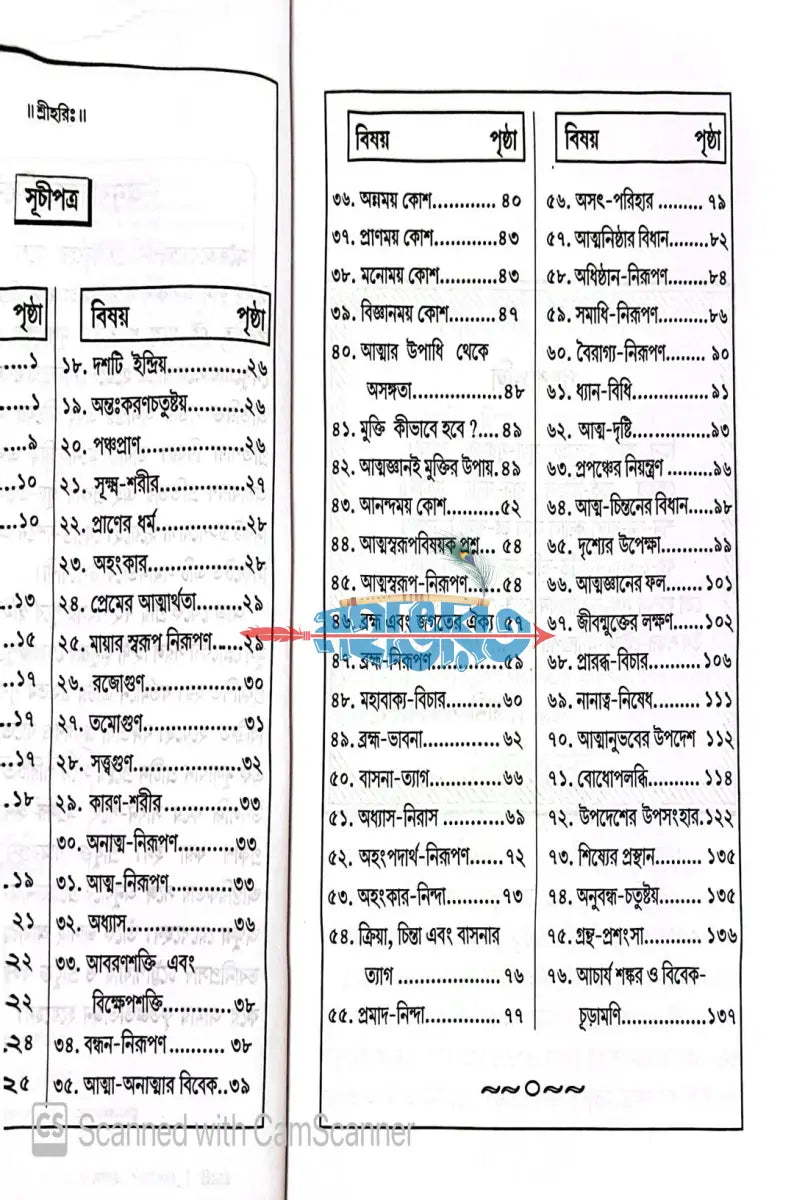 ॥ শ্রীহরিঃ॥
সূচীপত্র
পৃষ্ঠা
.....১
.....১
....৯
...১০
...১০
..১৩
..১৫
..১৭
..১৭
..১৭
..১৮
.১৯
২১
২২
২২
.২৪
২৫
বিষয় পৃষ্ঠা
১৮. দশটি ইন্দ্রিয়..............২৬
১৯. অন্তঃকরণচতুষ্টয়..........২৬
২০. পঞ্চপ্রাণ..................২৬
২১. সূক্ষ্ম-শরীর...............২৭
২২. প্রাণের ধর্ম................২৮
২৩. অহংকার.................২৮
২৪. প্রেমের আত্মার্থতা........২৯
২৫. মায়ার স্বরূপ নিরূপণ......২৯
২৬. রজোগুণ.................৩০
২৭. তমোগুণ................. ৩১
২৮. সত্ত্বগুণ...................৩২
২৯. কারণ-শরীর .............৩৩
৩০. অনাত্ম-নিরূপণ..........৩৩
৩১. আত্ম-নিরূপণ...........৩৩
৩২. অধ্যাস...................৩৬
৩৩. আবরণশক্তি এবং
বিক্ষেপশক্তি............৩৮
৩৪. বন্ধন-নিরূপণ .......... ৩৮
৩৫. আত্মা-অনাত্মার বিবেক..৩৯
বিষয় পৃষ্ঠা
৩৬. অন্নময় কোশ............ ৪০
৩৭. প্রাণময় কোশ............৪৩
৩৮. মনোময় কোশ...........৪৩
৩৯. বিজ্ঞানময় কোশ.........৪৭
৪০. আত্মার উপাধি থেকে
অসঙ্গতা................৪৮
৪১. মুক্তি কীভাবে হবে ?.... ৪৯
৪২. আত্মজ্ঞানই মুক্তির উপায়.৪৯
৪৩. আনন্দময় কোশ..........৫২
৪৪. আত্মস্বরূপবিষয়ক প্রশ্ন... ৫৪
৪৫. আত্মস্বরূপ-নিরূপণ......৫৪
৪৬. ব্রহ্ম এবং জগতের ঐক্য ৫৭
৪৭. ব্রহ্ম-নিরূপণ ৫৯
৪৮. মহাবাক্য-বিচার..........৬০
৪৯. ব্রহ্ম-ভাবনা.............. ৬২
৫০. বাসনা-ত্যাগ.............৬৬
৫১. অধ্যাস-নিরাস ...........৬৯
৫২. অহংপদার্থ-নিরূপণ......৭২
৫৩. অহংকার-নিন্দা..........৭৩
৫৪. ক্রিয়া, চিন্তা এবং বাসনার
ত্যাগ ................... ৭৬
৫৫. প্রমাদ-নিন্দা............. ৭৭
বিষয় পৃষ্ঠা
৫৬. অসৎ-পরিহার ......... ৭৯
৫৭. আত্মনিষ্ঠার বিধান........৮২
৫৮. অধিষ্ঠান-নিরূপণ........৮৪
৫৯. সমাধি-নিরূপণ..........৮৬
৬০. বৈরাগ্য-নিরূপণ........ ৯০
৬১. ধ্যান-বিধি...............৯১
৬২. আত্ম-দৃষ্টি...............৯৩
৬৩. প্রপঞ্চের নিয়ন্ত্রণ .........৯৬
৬৪. আত্ম-চিন্তনের বিধান.....৯৮
৬৫. দৃশ্যের উপেক্ষা..........৯৯
৬৬. আত্মজ্ঞানের ফল.......১০১
৬৭. জীবন্মুক্তের লক্ষণ......১০২
৬৮. প্রারব্ধ-বিচার.......... ১০৬
৬৯. নানাত্ব-নিষেধ......... ১১১
৭০. আত্মানুভবের উপদেশ ১১২
৭১. বোধোপলব্ধি.......... ১১৪
৭২. উপদেশের উপসংহার.১২২
৭৩. শিষ্যের প্রস্থান......... ১৩৫
৭৪. অনুবন্ধ-চতুষ্টয়....... ১৩৫
৭৫. গ্রন্থ-প্রশংসা........... ১৩৬
৭৬. আচার্য শঙ্কর ও বিবেক-
চূড়ামণি................১৩৭
CS Scanned with CamScanner